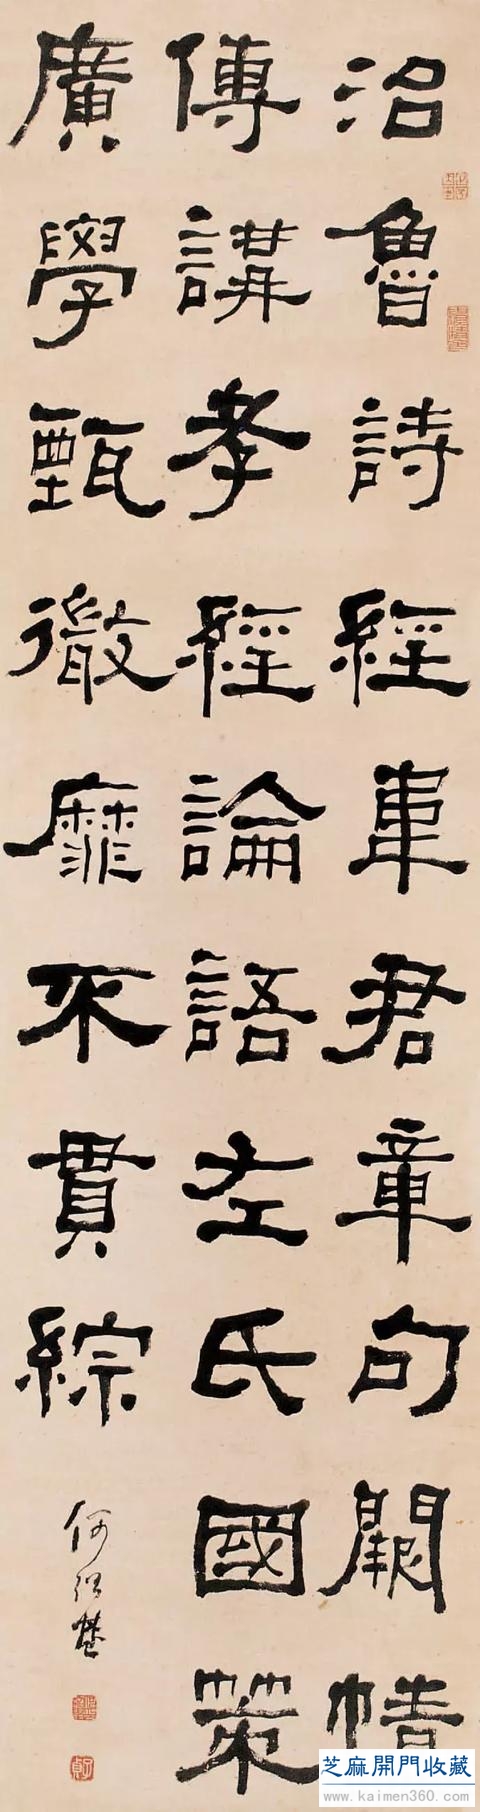 治魯詩經韋君章句闕幘
傳講孝經論語左氏國策
廣學甄徹靡不貫綜
何紹基
芝麻開門收藏
www.kaimen360.com